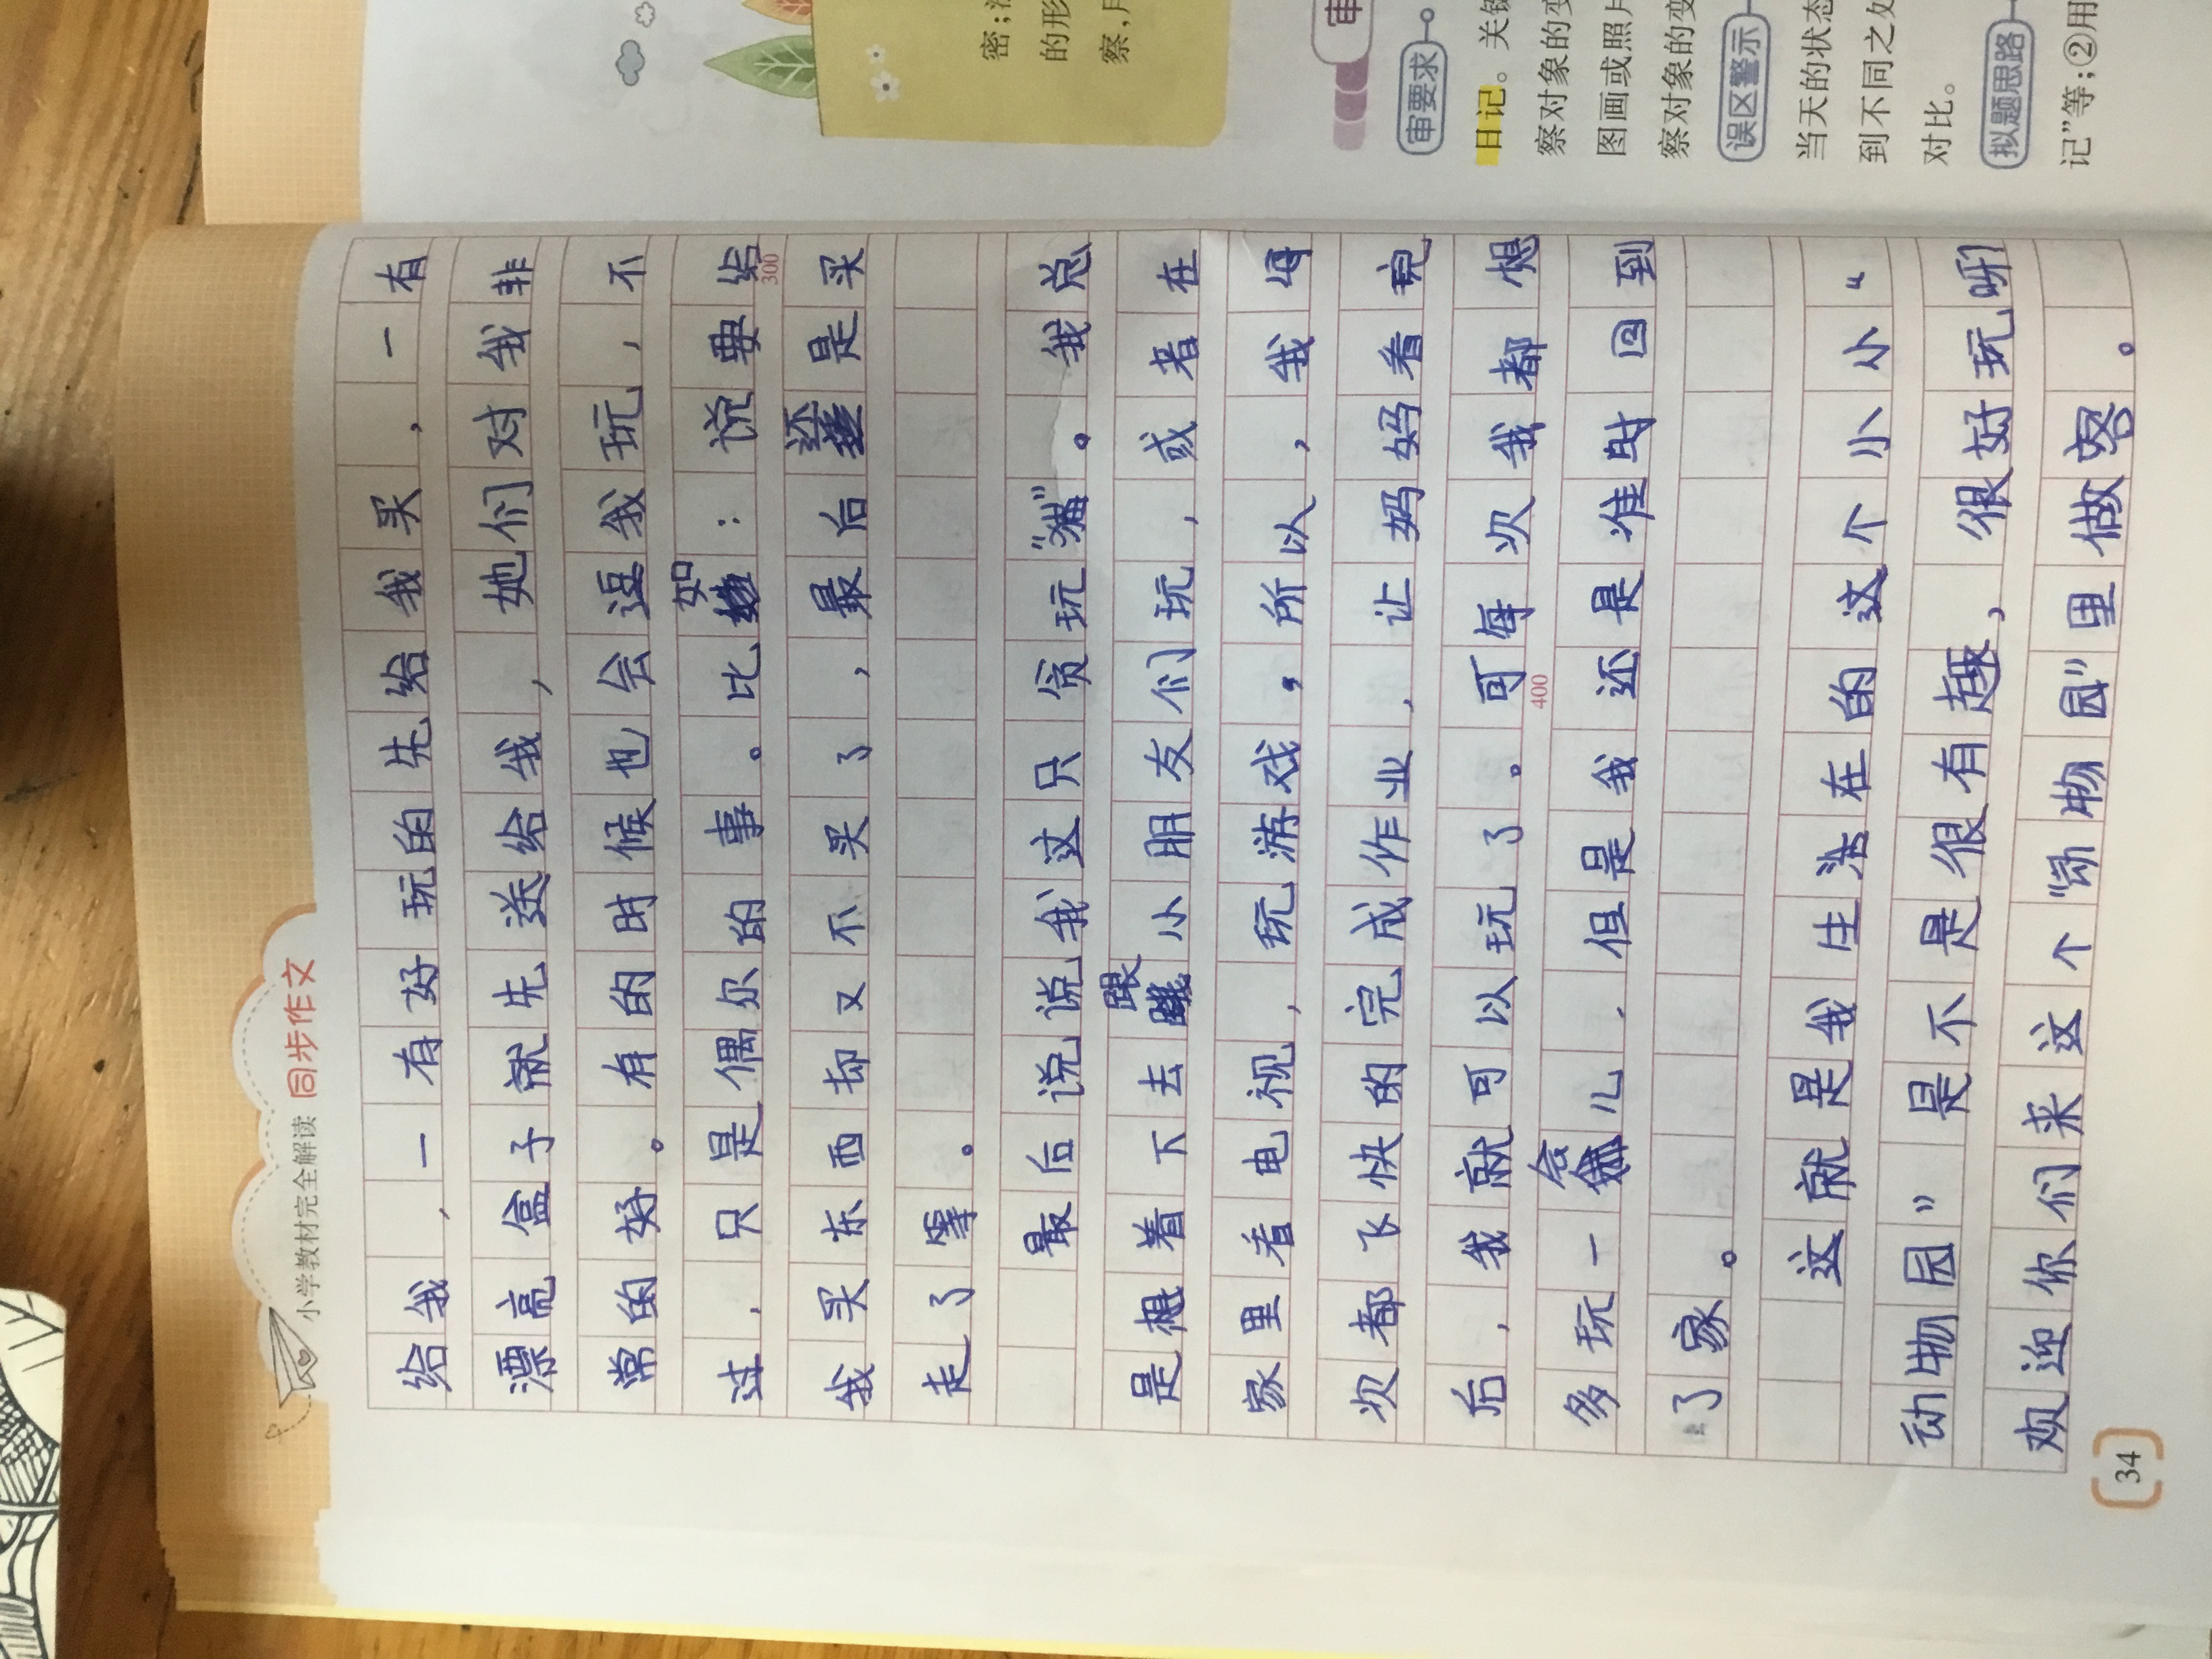 小学教材完全解读 同步作文
给我，一有好玩的先给我买，一有
漂亮盒子就先送给我，她们对我非
常的好。有的时候也会逗我玩，不
过，只是偶尔的事。比如：说要给
300
我买东西却又不买了，最后还是买
走了。
最后说说我这只贪玩“猫”。我总
是想着下去跟小朋友们玩，或者在
家里看电视，玩游戏，所以，我每
次都飞快的完成作业，让妈妈看完
后，我就可以玩了。可每次我都想
400
多玩一会儿，但是我还是准时回到
了家。
这就是我生活在的这个小小“
动物园”是不是很有趣，很好玩呀
欢迎你们来这个“动物园”里做客。
34
密；
的形
察，
审
审要求
日记。关键
察对象的变
图画或照片
察对象的变
误区警示
当天的状态
到不同之处
对比。
拟题思路
记”等；②用